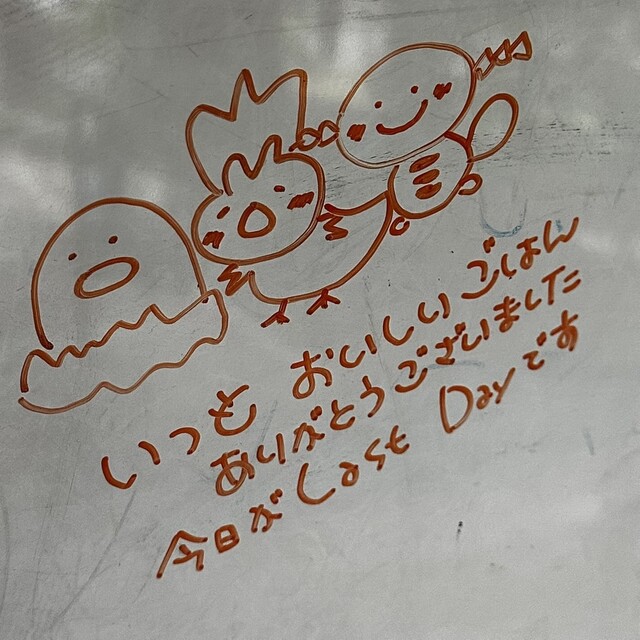 いつも おいしいごはん
ありがとうございました
今日が Last Dayです